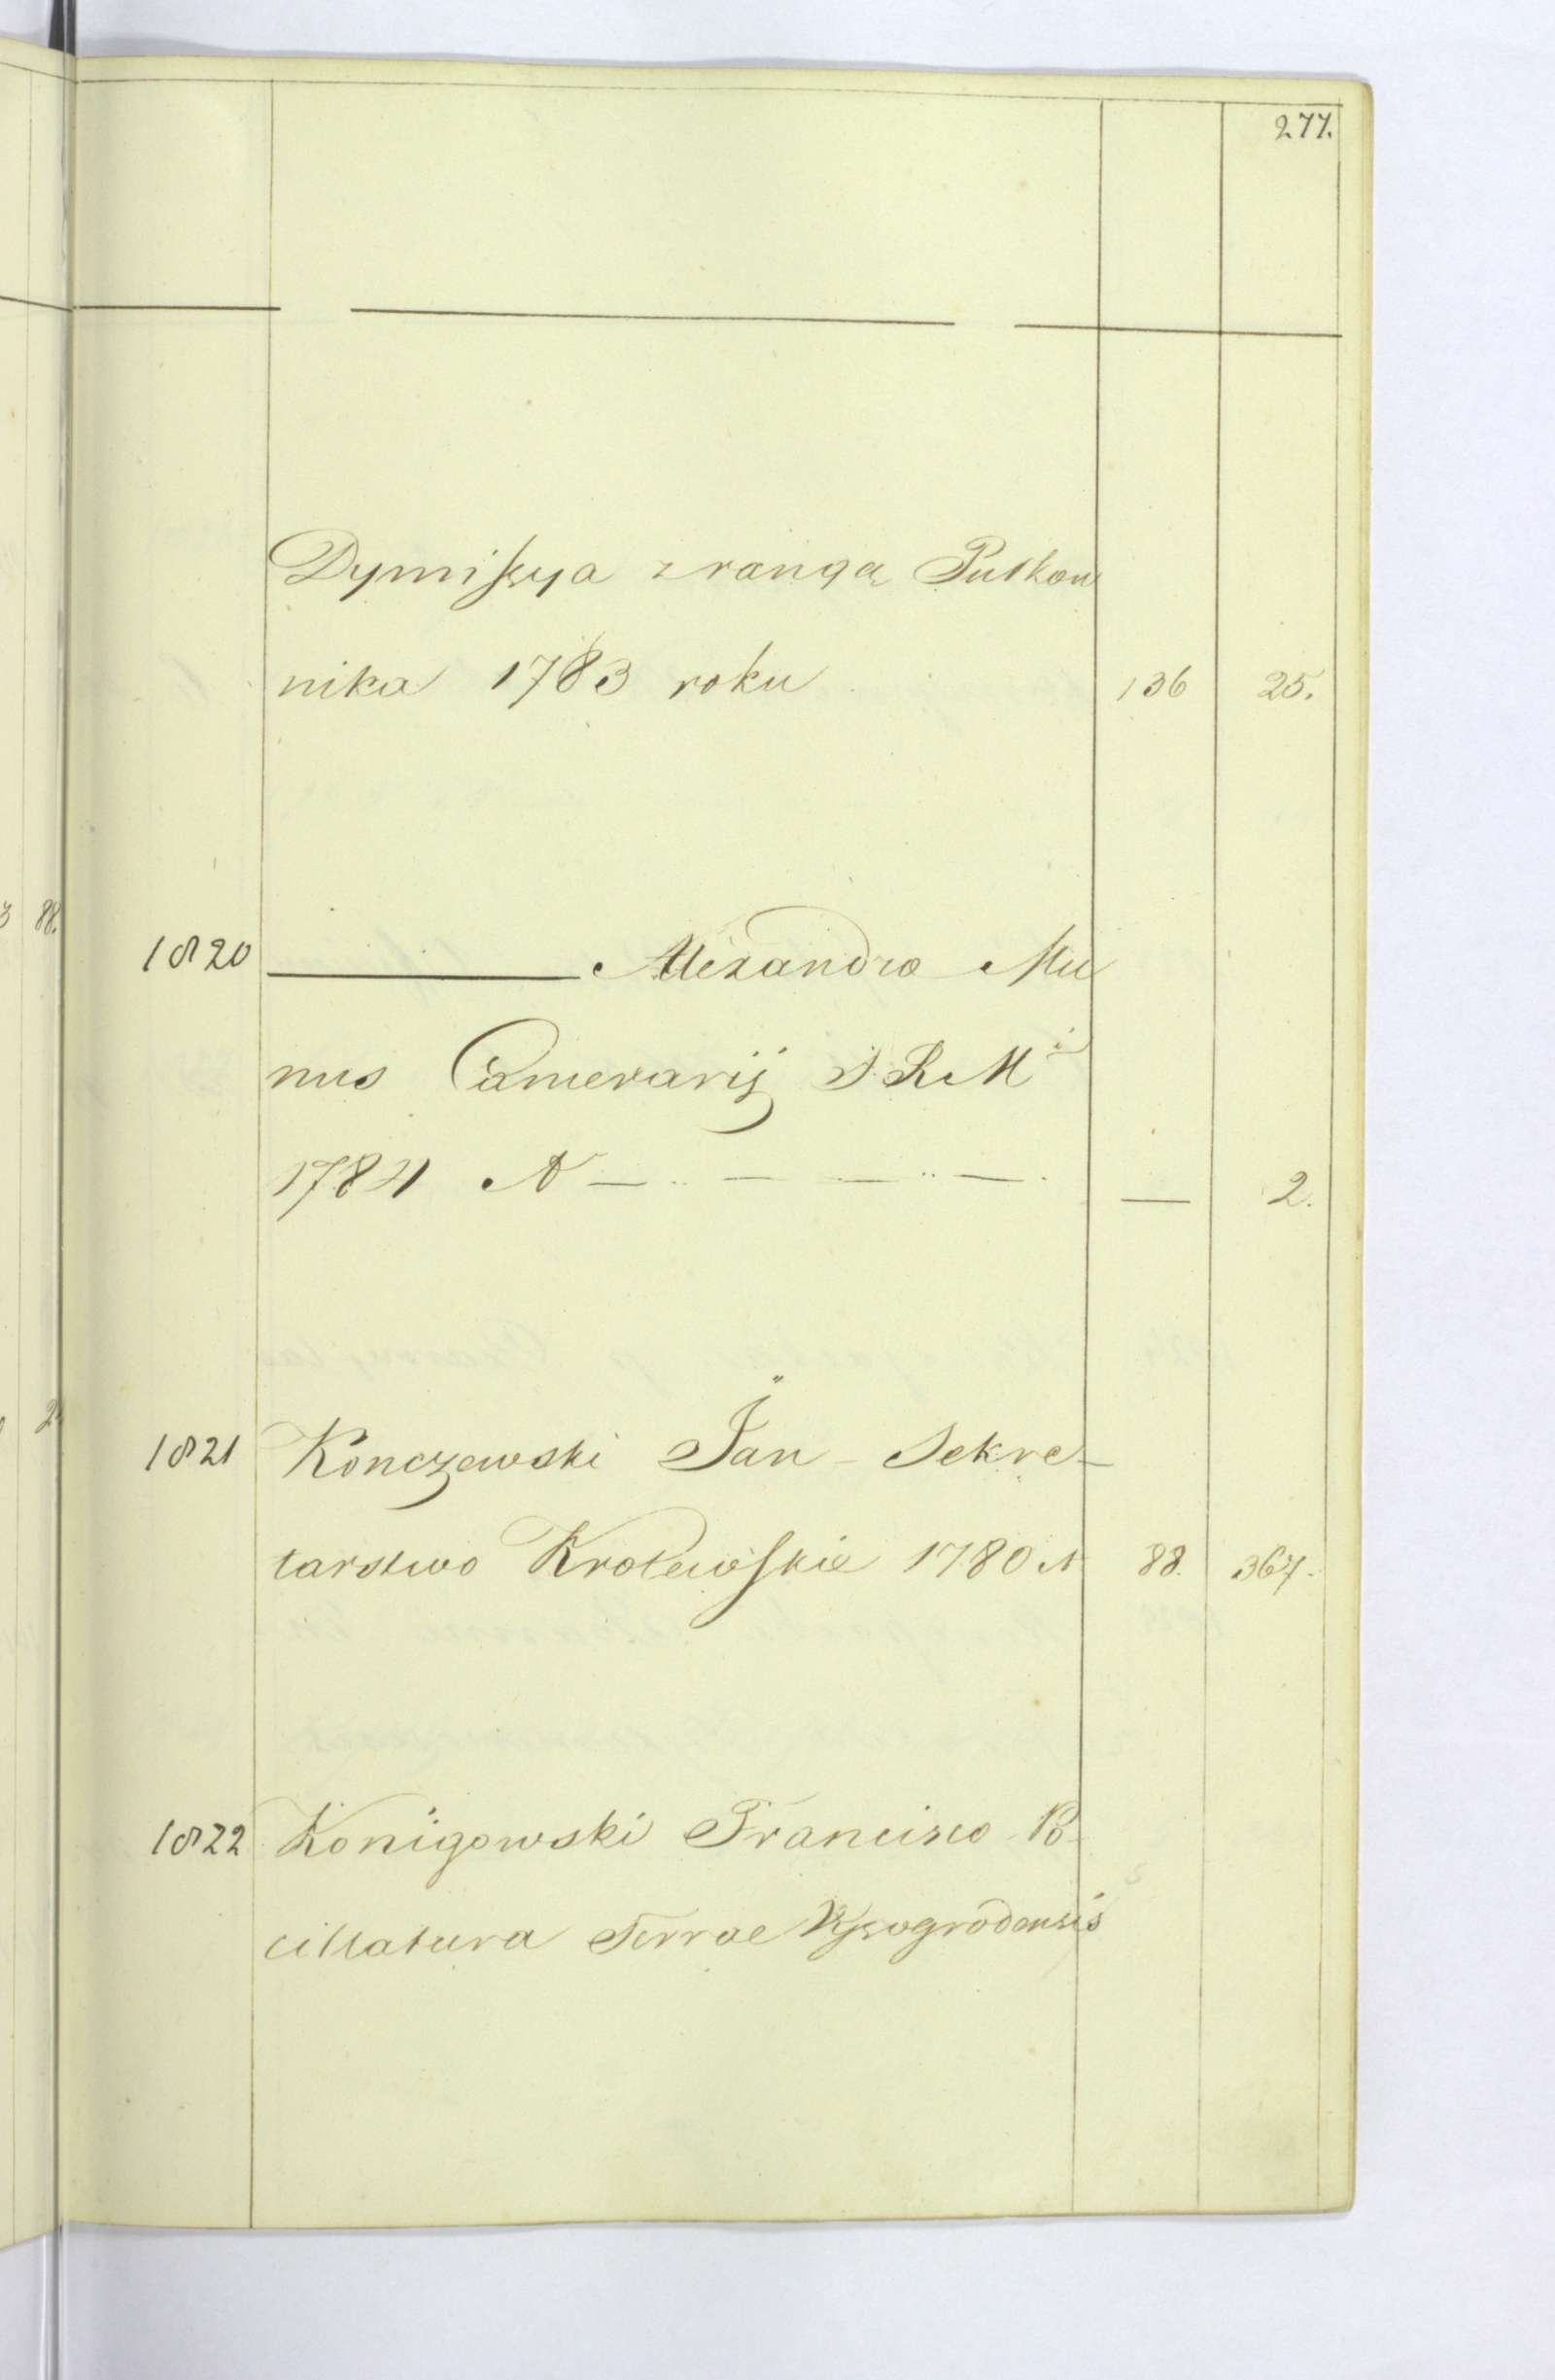 277.
Dymissya z rangą Pułkow
nika 1783 roku 136 25.
1820 ——— Alexandro Mu
nus Camerarij S. R. M i
1784 N — .. — — .. — . — 2.
1821 Konczewski Jan Sekre-
tarstwo Krolewskie 1780 N 88. 367.
1822 Konigowski Francisco Po
cillatura Terrae Wyssogrodensis
88.